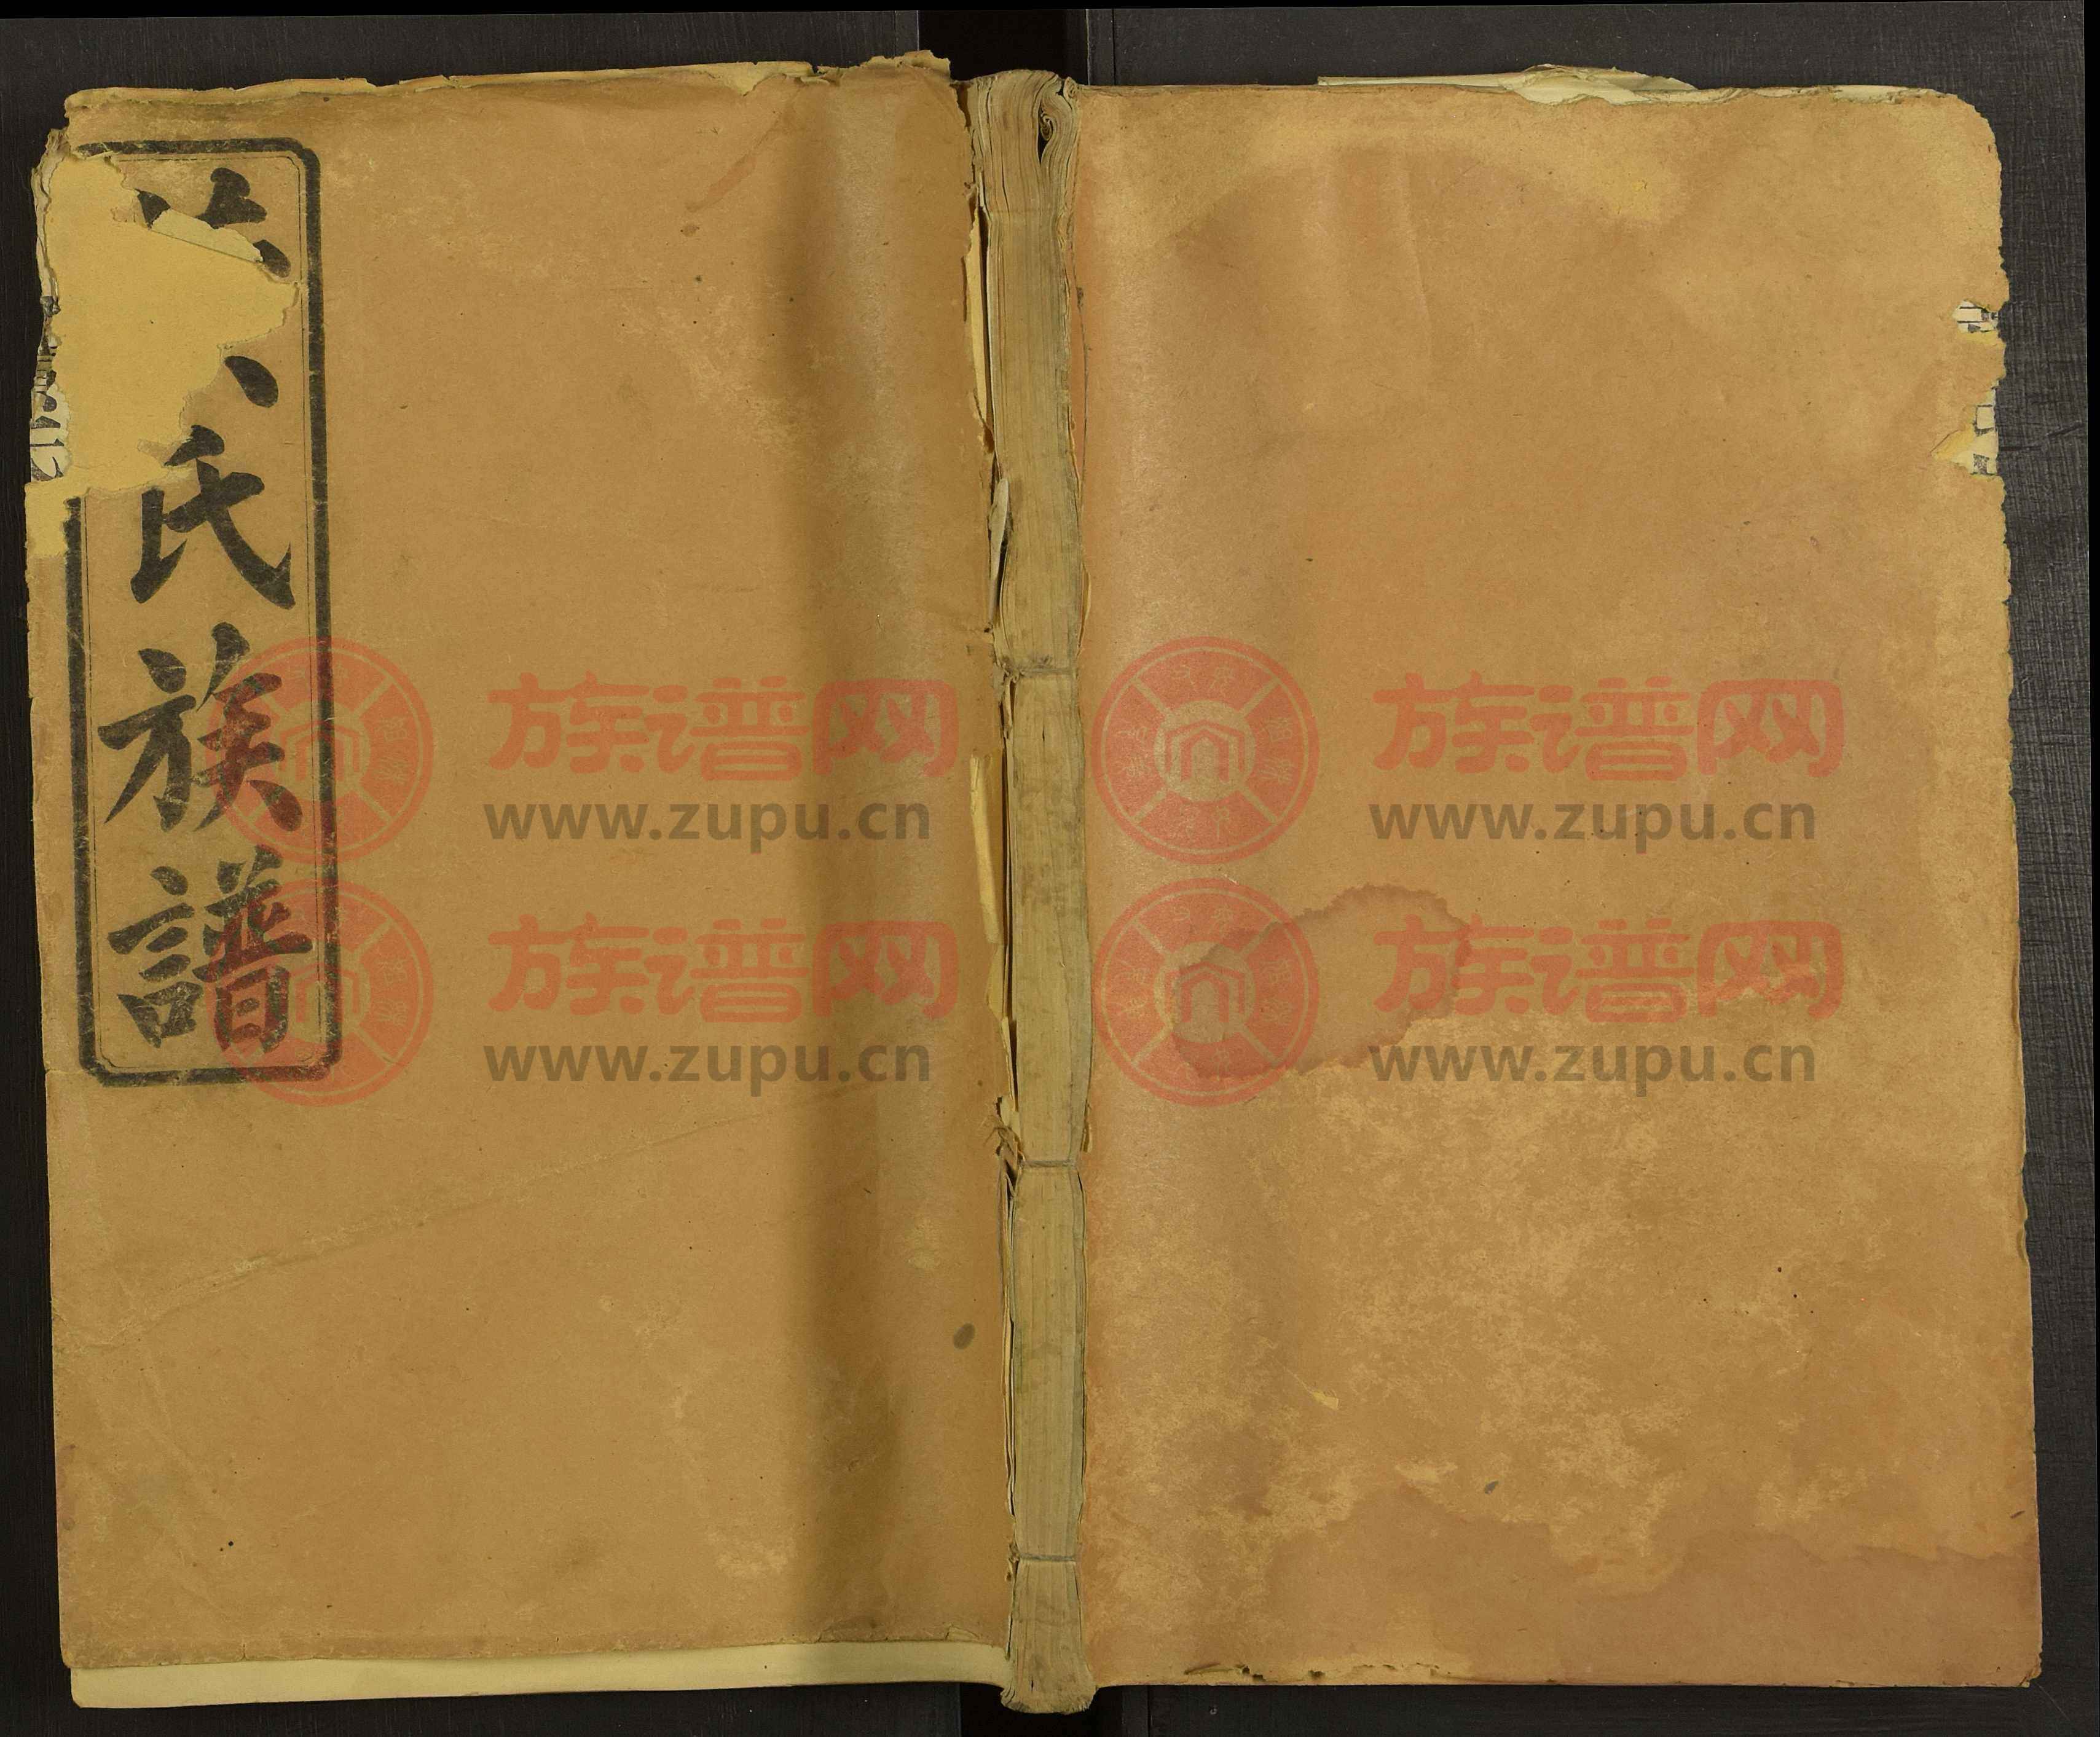 氏族譜
族谱网
www.zupu.cn
族谱网
www.zupu.cn
族谱网
www.zupu.cn
族谱网
www.zupu.cn